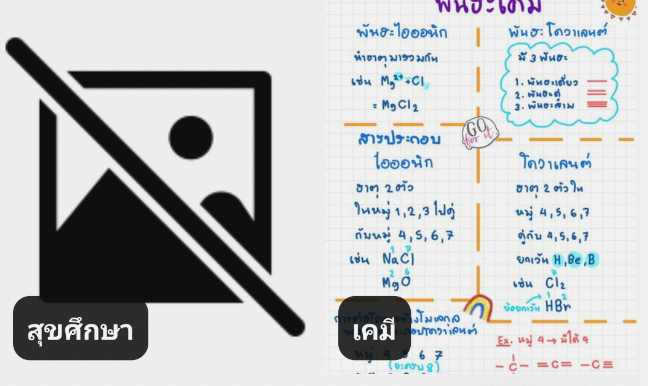 พันธะเคมี
พันธะไอออนิก
นำธาตุมารวมกัน
เช่น Mg²⁺+Cl
= MgCl₂
พันธะโควาเลนต์
มี 3 พันธะ
1. พันธะเดี่ยว
2. พันธะคู่
3. พันธะสาม
GO
for it
สารประกอบ
ไอออนิก
ธาตุ 2 ตัว
ในหมู่ 1,2,3 ไปคู่
กับหมู่ 4,5,6,7
เช่น NaCl
MgO
โควาเลนต์
ธาตุ 2 ตัวใน
หมู่ 4,5,6,7
คู่กับ 4,5,6,7
ยกเว้น H,Be,B
เช่น Cl₂
ข้อยกเว้น HBr
Ex. หมู่ 4 → มีได้ 4
- C - =C= -C≡
หมู่ 4 5 6 7
(จะครบ 8)
สุขศึกษา
เคมี